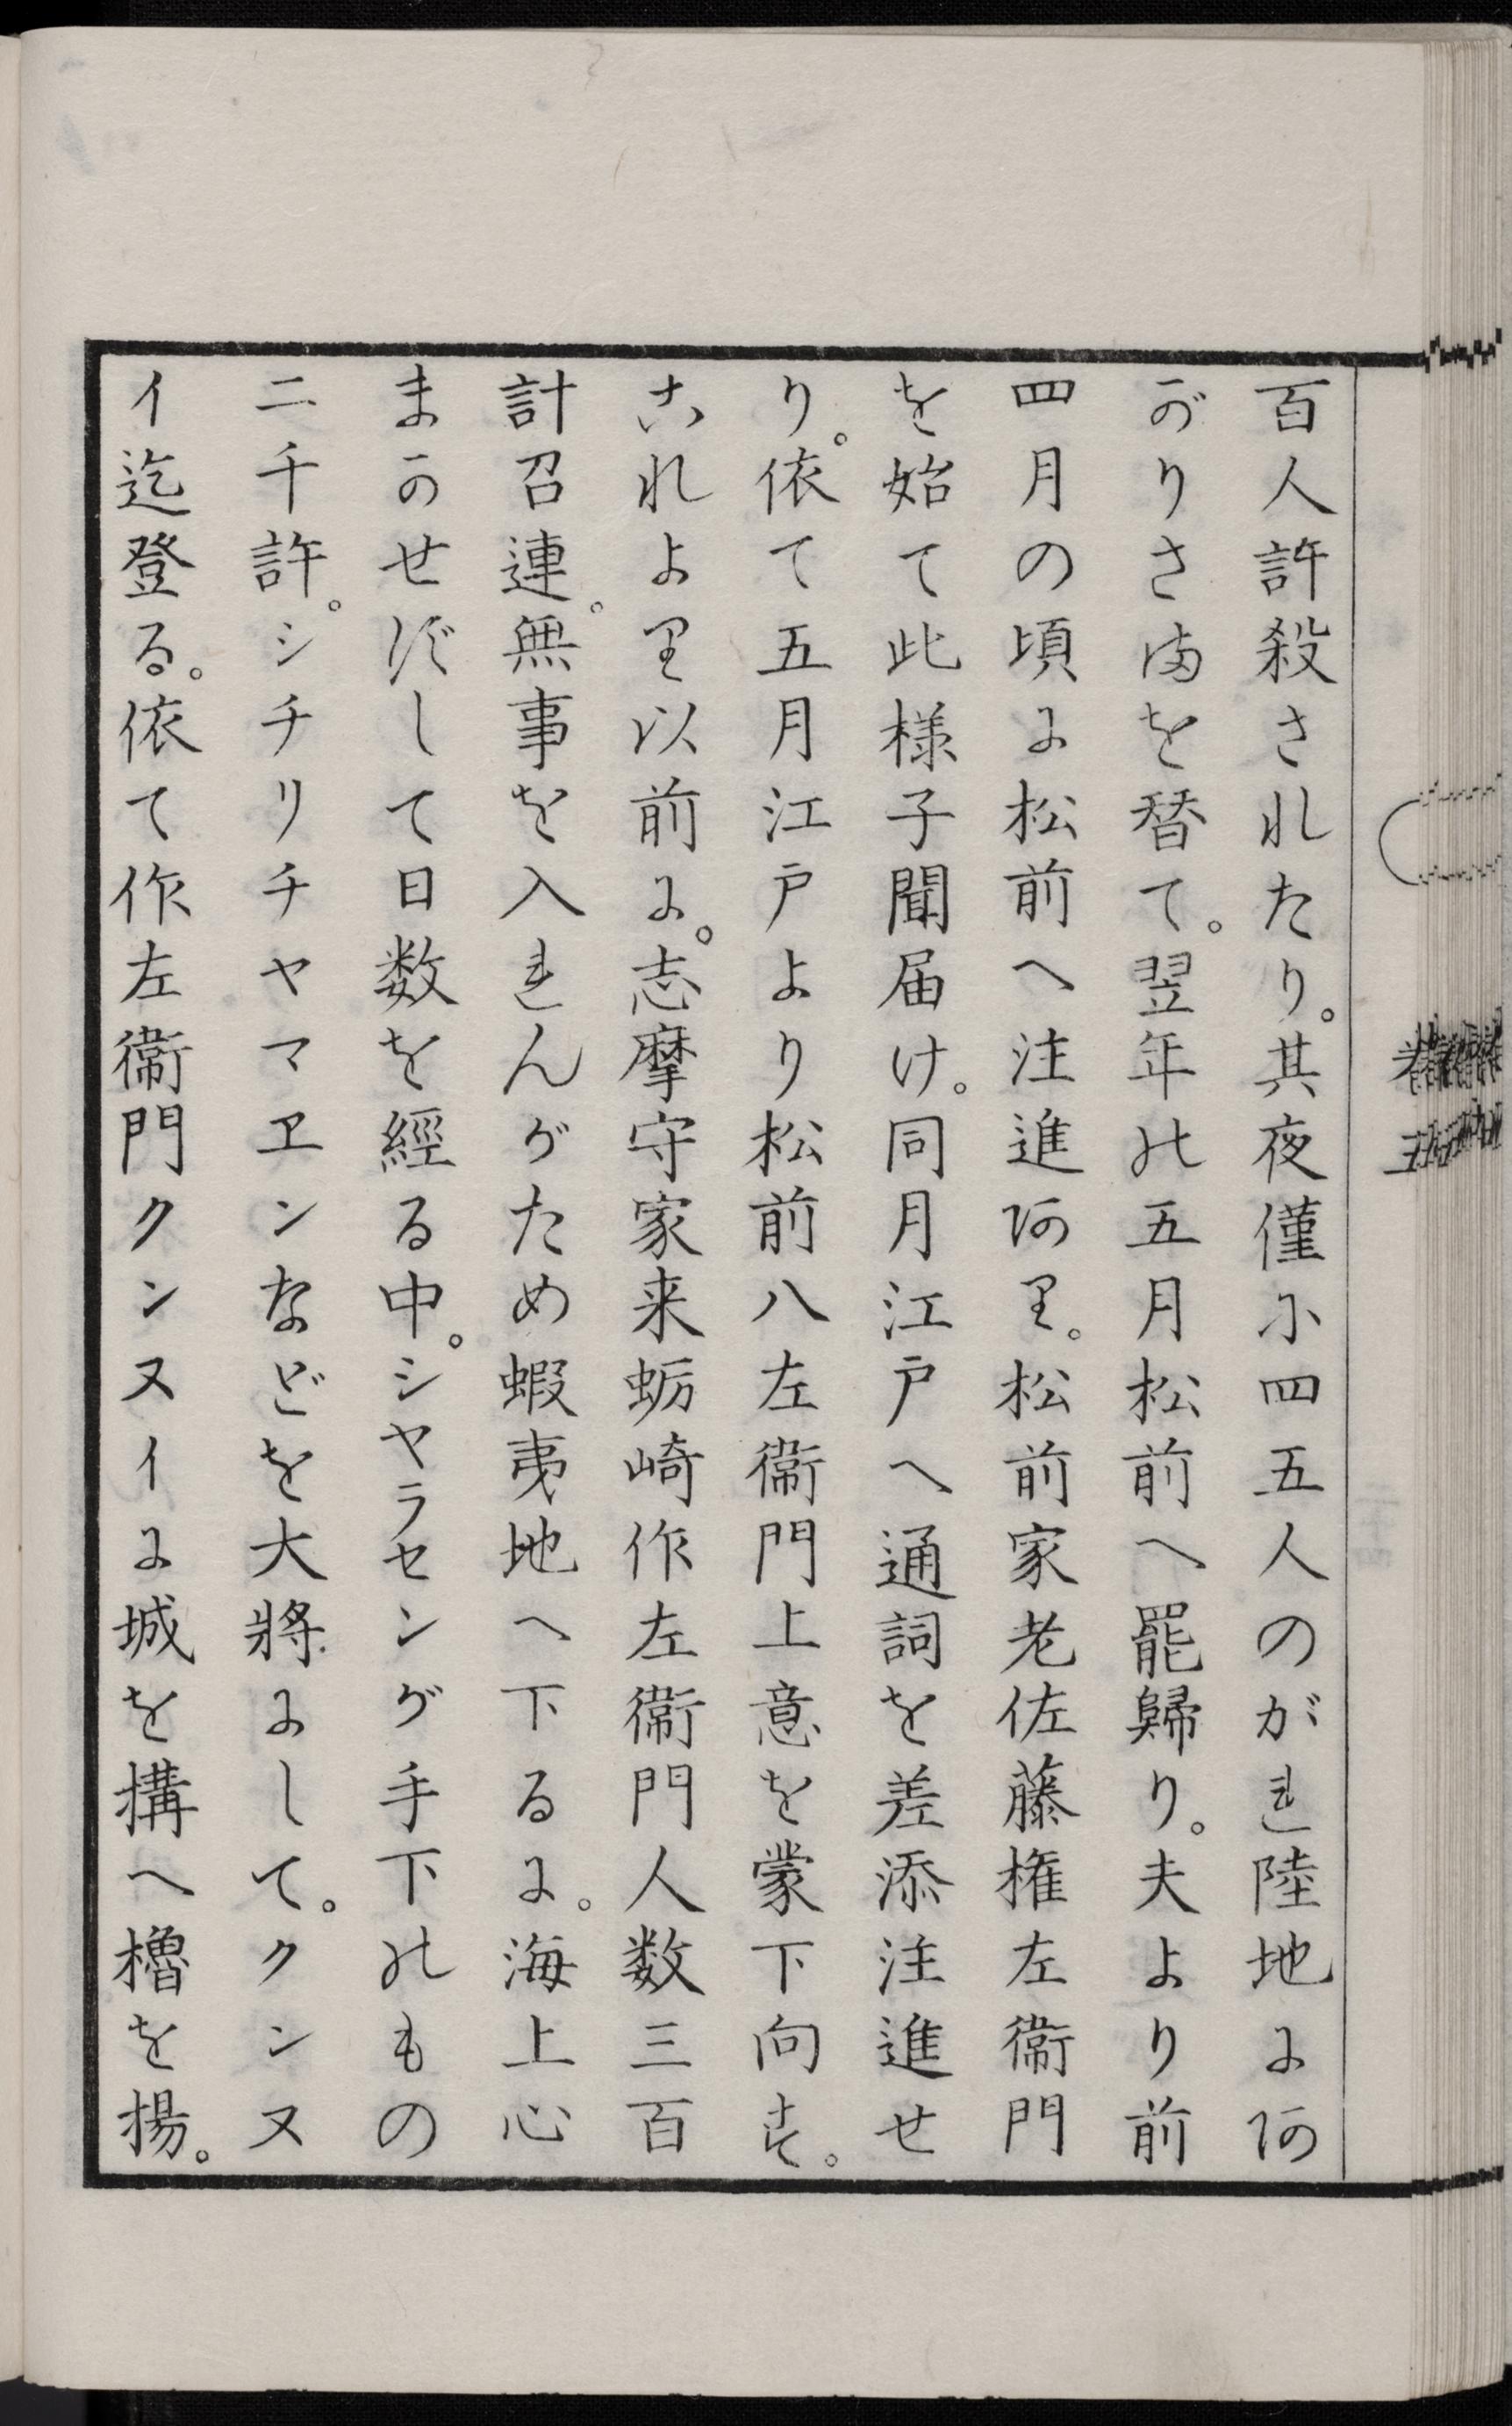 百人許殺されたり。其夜僅に四五人のがれ陸地にあ
がりさまを替て。翌年の五月松前へ罷歸り。夫より前
四月の頃に松前へ注進あり。松前家老佐藤権左衞門
を始て此様子聞届け。同月江戸へ通詞を差添注進せ
り。依て五月江戸より松前八左衞門上意を蒙下向す。
これより以前に。志摩守家来蛎崎作左衞門人数三百
計召連。無事を入れんがため蝦夷地へ下るに。海上心
まかせずして日数を經る中。シヤラセンガ手下のもの
二千許。シチリチヤマヱンなどを大將にして。クンヌ
イ迄登る。依て作左衞門クンヌイに城を搆へ櫓を揚。